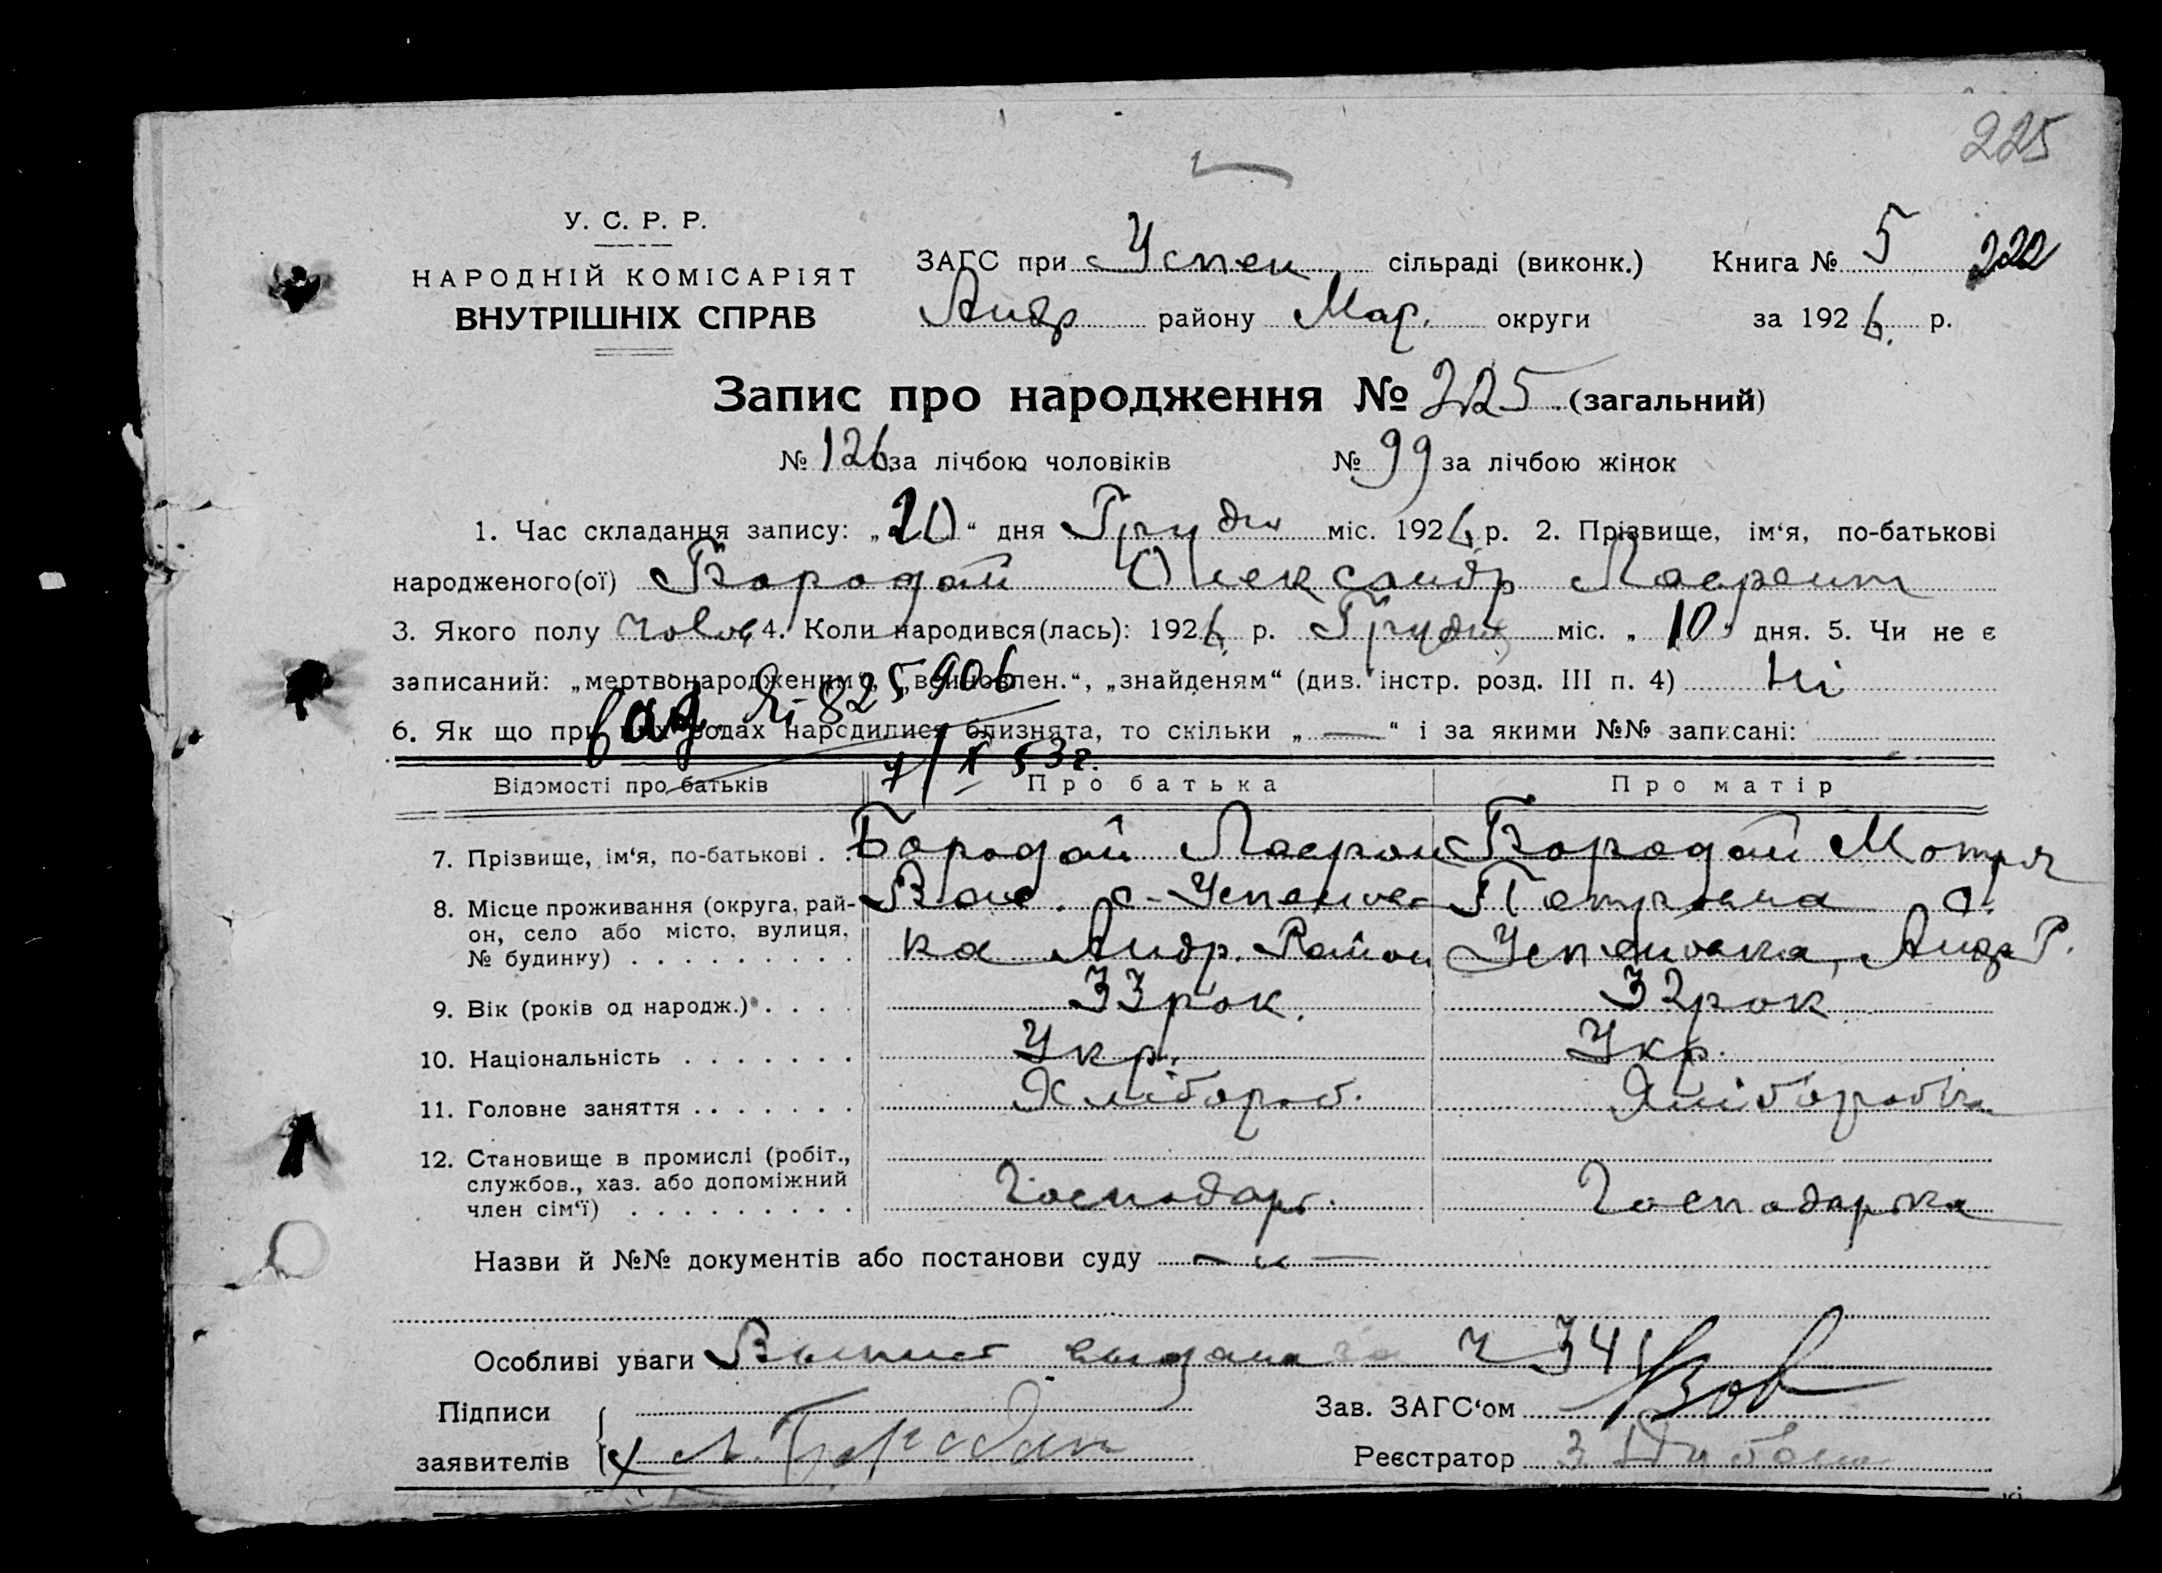 225
У. С. Р. Р.
НАРОДНІЙ КОМІСАРІЯТ
ВНУТРІШНІХ СПРАВ
ЗАГС при Успен сільраді (виконк.) Книга № 5 222
Андр району Мар. округи за 1926. р.
Запис про народження № 225 (загальний)
№ 126 за лічбою чоловіків № 99 за лічбою жінок
1. Час складання запису: „20“ дня Грудн міс. 1926 р. 2. Прізвище, ім‘я, по-батькові
народженого(ої) Бородай Олександр Лаврент
3. Якого полу чолов 4. Коли народився(лась): 1926 р. Грудня міс. „10“ дня. 5. Чи не є
записаний: „мертвонародженим“, „всиновлен.“, „знайденям“ (див. інстр. розд. III п. 4) Ні
825906
6. Як що при цих родах народилися близнята, то скільки „—“ і за якими №№ записані:
53г.
Відомості про батьків Про батька Про матір
7. Прізвище, ім‘я, по-батькові . . Бородай Лаврен Бородай Мотря
8. Місце проживання (округа, рай- Вас. с-Успенов Петровна с.
он, село або місто, вулиця, ка Андр. Район Успеновка, Андр Р.
№ будинку) . . . . . . . . .
9. Вік (років од народж.) . . . . 33 рок. 32 рок
10. Національність . . . . . . . Укр. Укр.
11. Головне заняття . . . . . . . Хлібороб. Хліборобка
12. Становище в промислі (робіт.,
службов., хаз. або допоміжний Господарь. Господарка
член сім‘ї) . . . . . . . . .
Назви й №№ документів або постанови суду — „ —
Особливі уваги Выпись выдана за ч 341
Підписи Зав. ЗАГС‘ом
заявителів х Л. Бородай Реєстратор